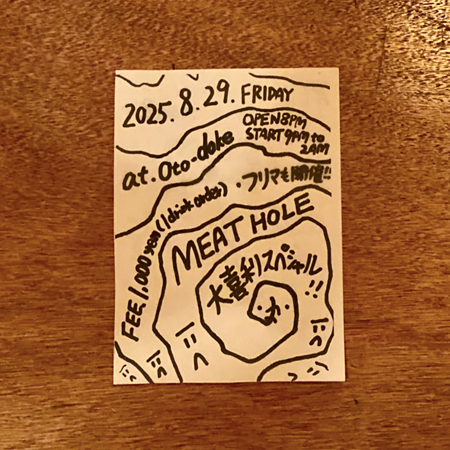 2025. 8. 29. FRIDAY
OPEN 8PM
START 9PM to
2AM
at. Oto-doke
・フリマも開催!!
FEE 1,000 yen (1 drink order)
MEAT HOLE
大喜利スペシャル!!